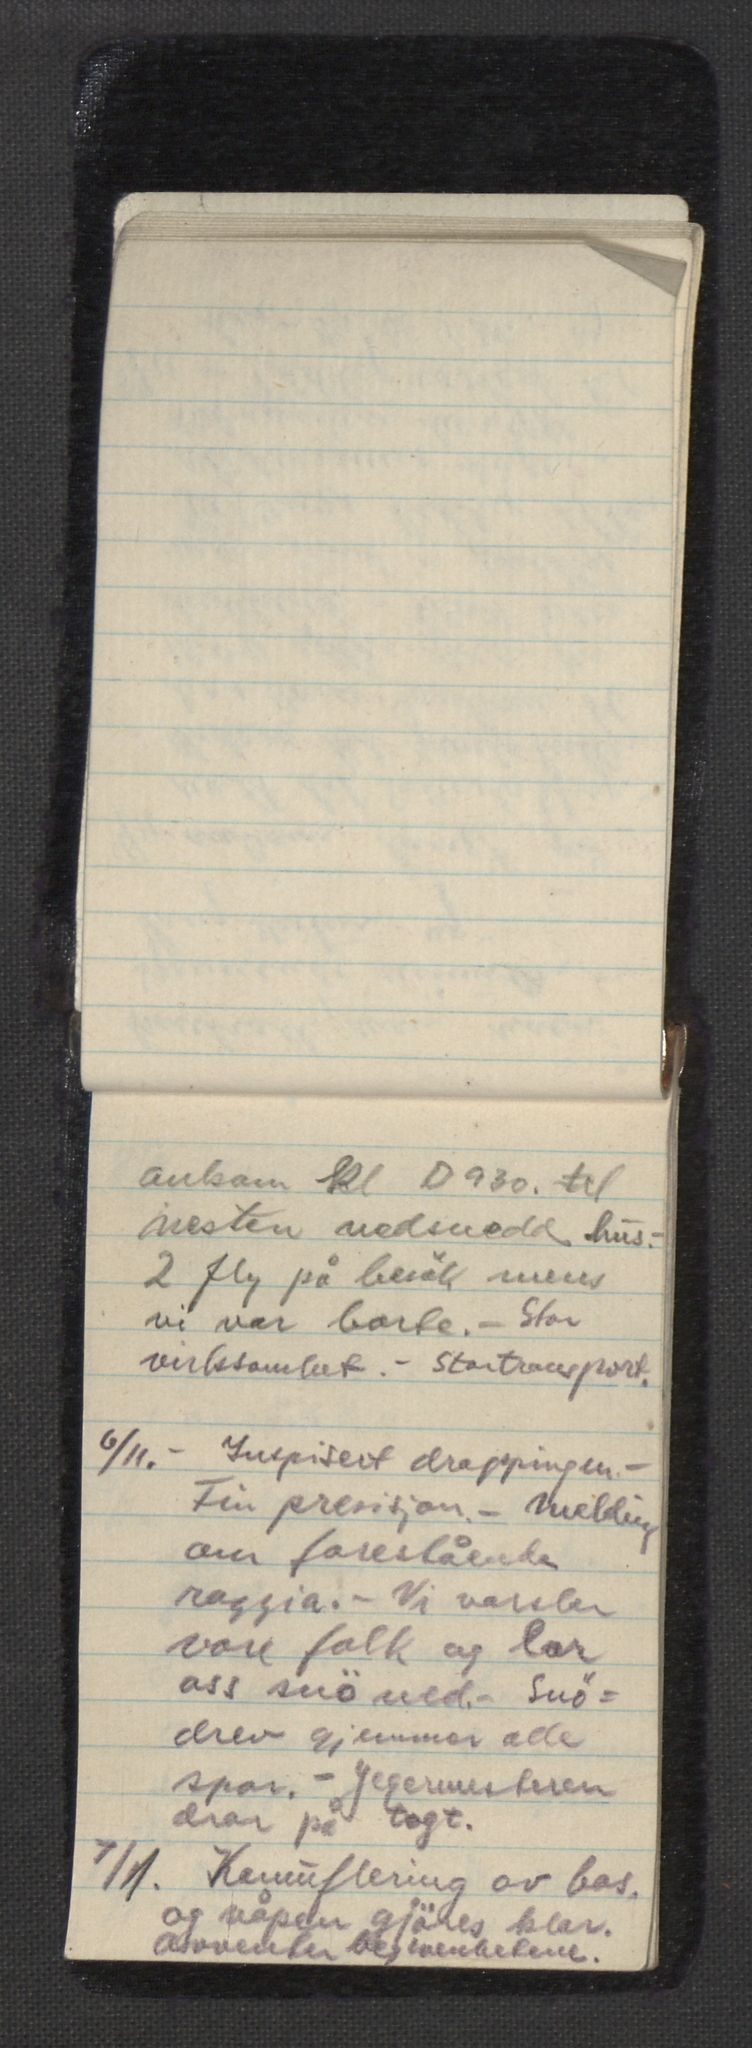 ankom kl 0930. til
nesten nedsnedd hus.-
2 fly på besök mens
vi var borte. - Stor
virksomhet. - Stortransport.
6/11. - Inspisert droppingen. -
Fin presisjon. - Melding
om forestående
razzia. - Vi varsler
våre folk og lar
oss snö ned. - Snö=
drev gjemmer alle
spor. - Jegermesteren
drar på togt.
7/11. Kamuflering av bas.
og våpen gjöres klar.
avventer begivenhetene.